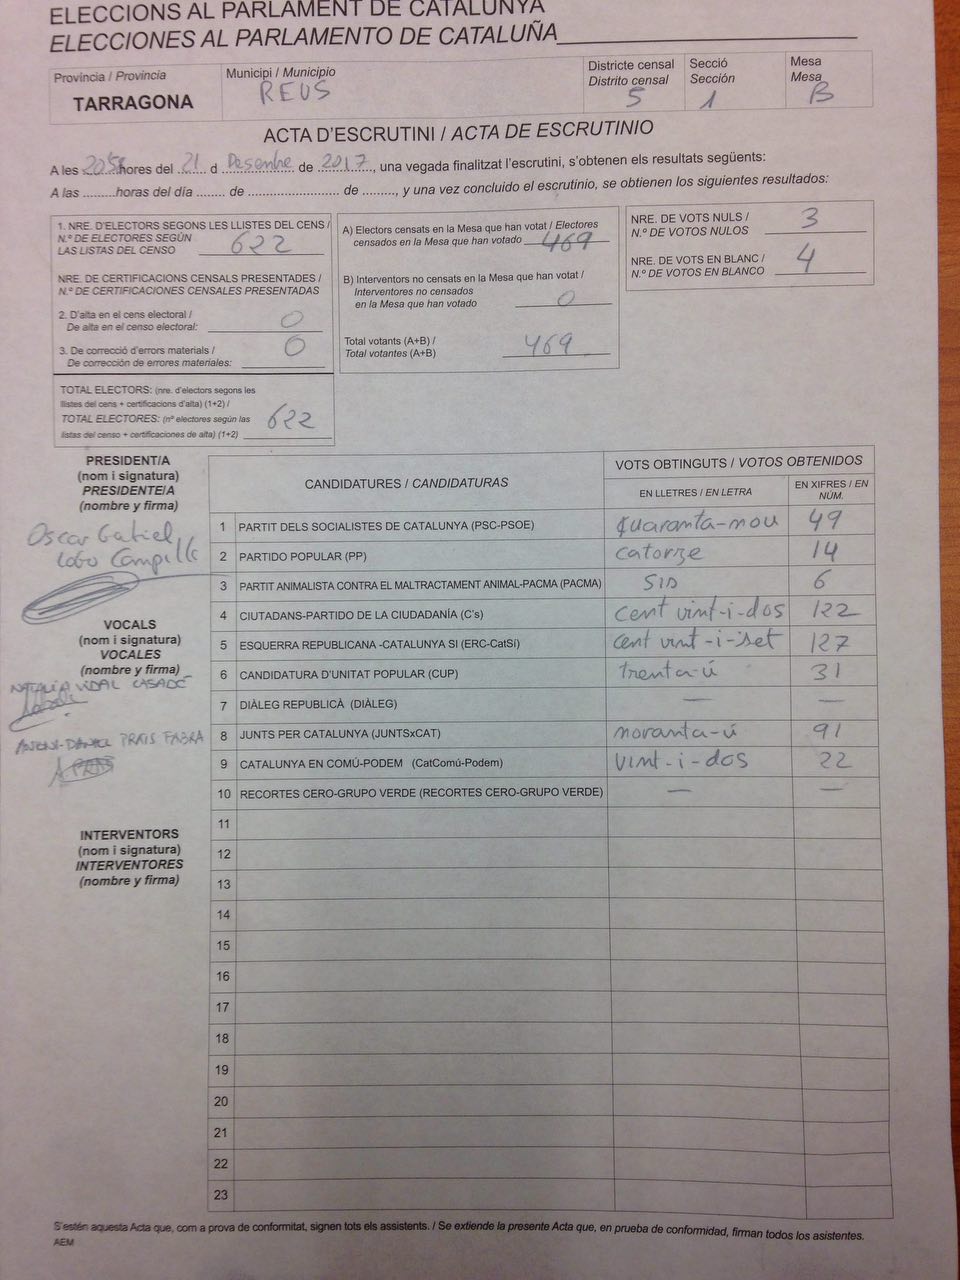 ELECCIONS AL PARLAMENT DE CATALUNYA
ELECCIONES AL PARLAMENTO DE CATALUÑA
Província / Provincia
TARRAGONA
Municipi / Municipio
REUS
Districte censal
Distrito censal
5
Secció
Sección
1
Mesa
Mesa
B
ACTA D'ESCRUTINI / ACTA DE ESCRUTINIO
A les 20'58 hores del 21 d Desembre de 2017, una vegada finalitzat l'escrutini, s'obtenen els resultats següents:
A las ........horas del día ....... de ........................ de ........, y una vez concluido el escrutinio, se obtienen los siguientes resultados:
1. NRE. D'ELECTORS SEGONS LES LLISTES DEL CENS /
N.º DE ELECTORES SEGÚN
LAS LISTAS DEL CENSO 622
NRE. DE CERTIFICACIONS CENSALS PRESENTADES /
N.º DE CERTIFICACIONES CENSALES PRESENTADAS
2. D'alta en el cens electoral /
De alta en el censo electoral: 0
3. De correcció d'errors materials /
De corrección de errores materiales: 0
TOTAL ELECTORS: (nre. d'electors segons les
llistes del cens + certificacions d'alta) (1+2) /
TOTAL ELECTORES: (nº electores según las
listas del censo + certificaciones de alta) (1+2) 622
A) Electors censats en la Mesa que han votat / Electores
censados en la Mesa que han votado 469
B) Interventors no censats en la Mesa que han votat /
Interventores no censados
en la Mesa que han votado 0
Total votants (A+B) /
Total votantes (A+B) 469
NRE. DE VOTS NULS /
N.º DE VOTOS NULOS 3
NRE. DE VOTS EN BLANC /
N.º DE VOTOS EN BLANCO 4
PRESIDENT/A
(nom i signatura)
PRESIDENTE/A
(nombre y firma)
Oscar Gabriel
Lobo Campillo
VOCALS
(nom i signatura)
VOCALES
(nombre y firma)
NATALIA VIDAL CASADÉ
ANTONI-DANIEL PRATS FABRA
INTERVENTORS
(nom i signatura)
INTERVENTORES
(nombre y firma)
CANDIDATURES / CANDIDATURAS
VOTS OBTINGUTS / VOTOS OBTENIDOS
EN LLETRES / EN LETRA
EN XIFRES / EN NÚM.
1 PARTIT DELS SOCIALISTES DE CATALUNYA (PSC-PSOE) quaranta-nou 49
2 PARTIDO POPULAR (PP) catorze 14
3 PARTIT ANIMALISTA CONTRA EL MALTRACTAMENT ANIMAL-PACMA (PACMA) sis 6
4 CIUTADANS-PARTIDO DE LA CIUDADANÍA (C's) cent vint-i-dos 122
5 ESQUERRA REPUBLICANA -CATALUNYA SI (ERC-CatSí) cent vint-i-set 127
6 CANDIDATURA D'UNITAT POPULAR (CUP) trenta-ú 31
7 DIÀLEG REPUBLICÀ (DIÀLEG) — —
8 JUNTS PER CATALUNYA (JUNTSxCAT) noranta-ú 91
9 CATALUNYA EN COMÚ-PODEM (CatComú-Podem) vint-i-dos 22
10 RECORTES CERO-GRUPO VERDE (RECORTES CERO-GRUPO VERDE) — —
11
12
13
14
15
16
17
18
19
20
21
22
23
S'estén aquesta Acta que, com a prova de conformitat, signen tots els assistents. / Se extiende la presente Acta que, en prueba de conformidad, firman todos los asistentes.
AEM